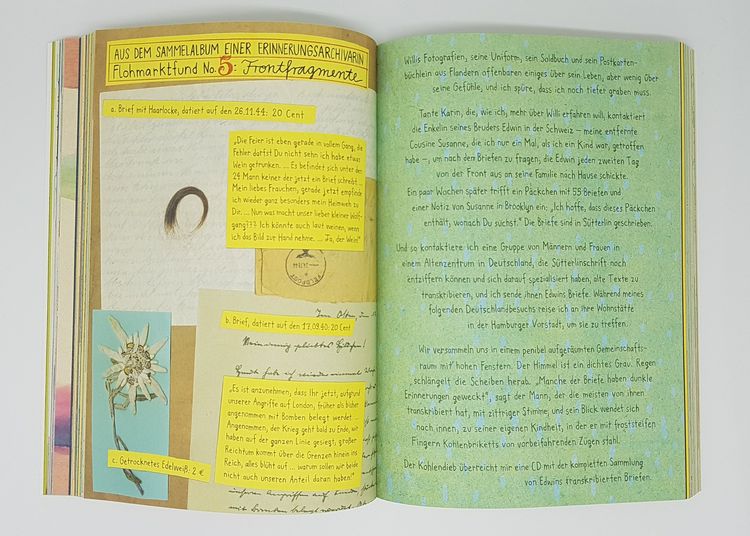 AUS DEM SAMMELALBUM EINER ERINNERUNGSARCHIVARIN
Flohmarktfund No. 5: Frontfragmente
a. Brief mit Haarlocke, datiert auf den 26.11.44: 20 Cent
„Die Feier ist eben gerade in vollem Gang, die
Fehler darfst Du nicht sehn ich habe etwas
Wein getrunken. ... Es befindet sich unter den
24 Mann keiner der jetzt ein Brief schreibt ...
Mein liebes Frauchen, gerade jetzt empfinde
ich wieder ganz besonders mein Heimweh zu
Dir. ... Nun was macht unser lieber kleiner Wolf-
gang??? Ich könnte auch laut weinen, wenn
ich das Bild zur Hand nehme. ... Ja, der Wein“
FELDPOST
b. Brief, datiert auf den 17.09.40: 20 Cent
„Es ist anzunehmen, dass Ihr jetzt, aufgrund
unserer Angriffe auf London, früher als bisher
angenommen mit Bomben belegt werdet ...
Angenommen, der Krieg geht bald zu Ende, wir
haben auf der ganzen Linie gesiegt, großer
Reichtum kommt über die Grenzen hinein ins
Reich, alles blüht auf ... warum sollen wir beide
nicht auch unseren Anteil daran haben?“
c. Getrocknetes Edelweiß: 2 €
Willis Fotografien, seine Uniform, sein Soldbuch und sein Postkarten-
büchlein aus Flandern offenbaren einiges über sein Leben, aber wenig über
seine Gefühle, und ich spüre, dass ich noch tiefer graben muss.
Tante Karin, die, wie ich, mehr über Willi erfahren will, kontaktiert
die Enkelin seines Bruders Edwin in der Schweiz – meine entfernte
Cousine Susanne, die ich nur ein Mal, als ich ein Kind war, getroffen
habe –, um nach den Briefen zu fragen, die Edwin jeden zweiten Tag
von der Front aus an seine Familie nach Hause schickte.
Ein paar Wochen später trifft ein Päckchen mit 55 Briefen und
einer Notiz von Susanne in Brooklyn ein: „Ich hoffe, dass dieses Päckchen
enthält, wonach Du suchst.“ Die Briefe sind in Sütterlin geschrieben.
Und so kontaktiere ich eine Gruppe von Männern und Frauen in
einem Altenzentrum in Deutschland, die Sütterlinschrift noch
entziffern können und sich darauf spezialisiert haben, alte Texte zu
transkribieren, und ich sende ihnen Edwins Briefe. Während meines
folgenden Deutschlandbesuchs reise ich an ihre Wohnstätte
in der Hamburger Vorstadt, um sie zu treffen.
Wir versammeln uns in einem penibel aufgeräumten Gemeinschafts-
raum mit hohen Fenstern. Der Himmel ist ein dichtes Grau. Regen
schlängelt die Scheiben herab. „Manche der Briefe haben dunkle
Erinnerungen geweckt“, sagt der Mann, der die meisten von ihnen
transkribiert hat, mit zittriger Stimme, und sein Blick wendet sich
nach innen, zu seiner eigenen Kindheit, in der er mit froststeifen
Fingern Kohlenbriketts von vorbeifahrenden Zügen stahl.
Der Kohlendieb überreicht mir eine CD mit der kompletten Sammlung
von Edwins transkribierten Briefen.